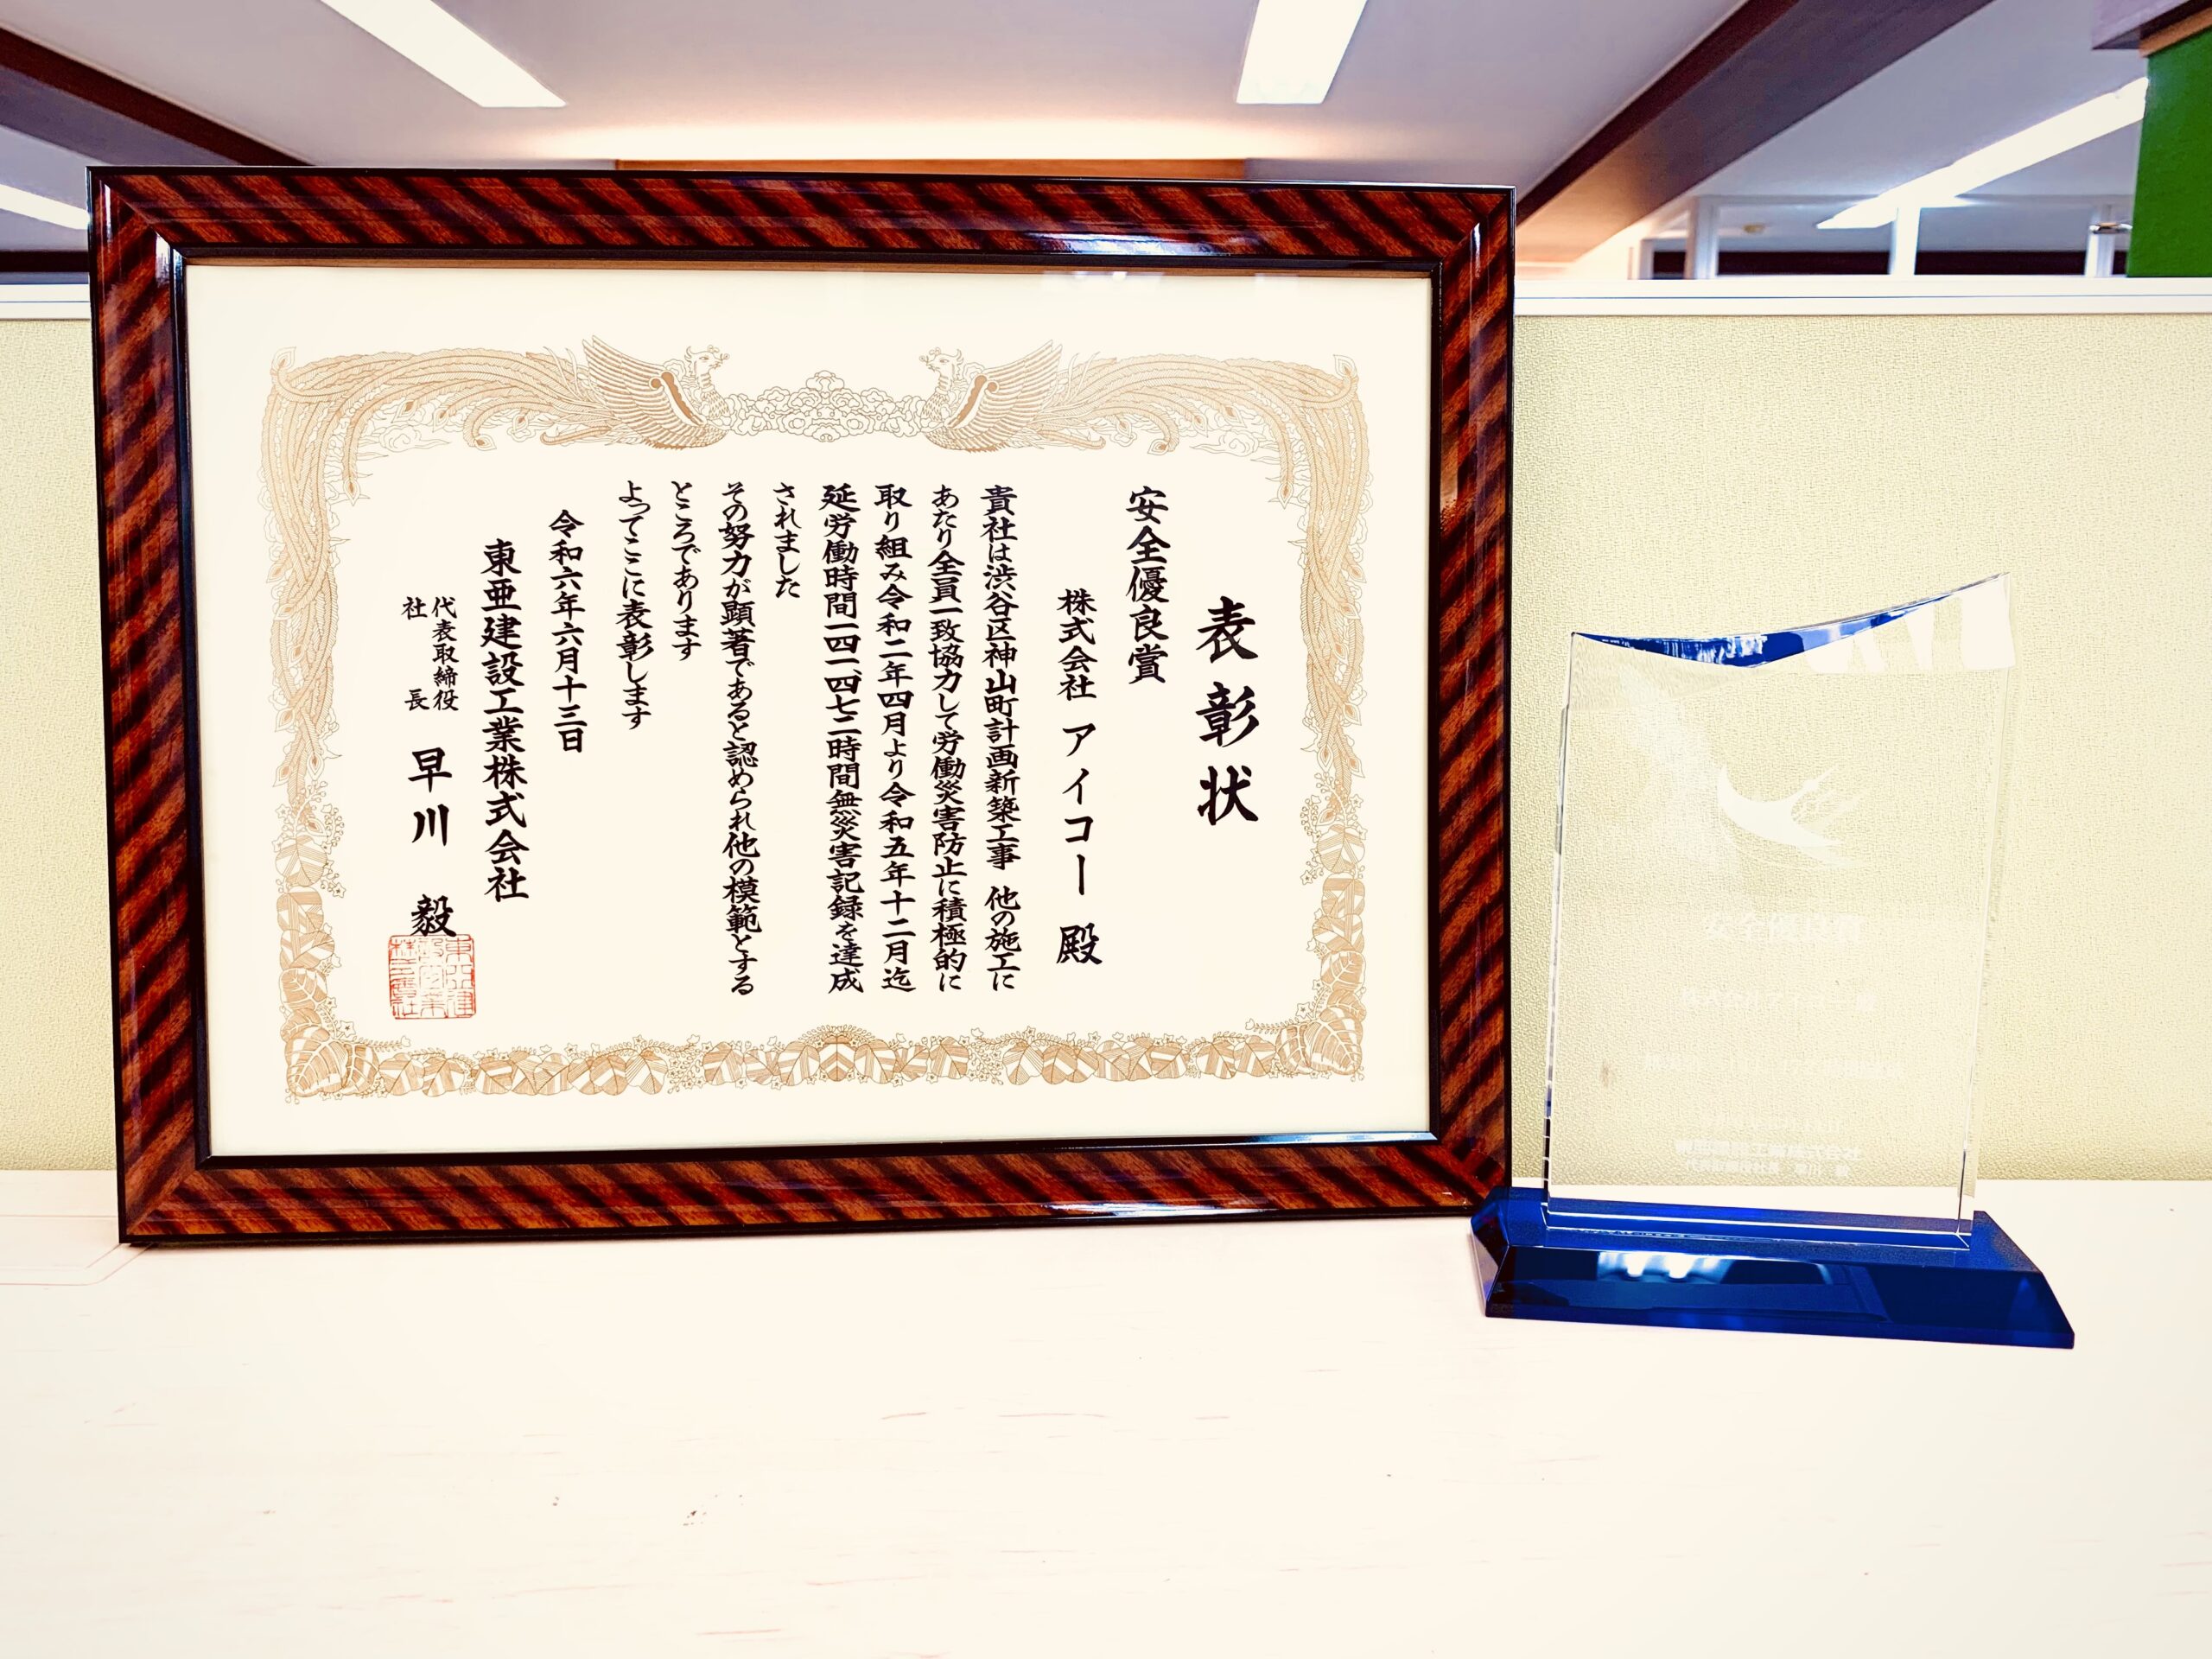 表彰状
安全優良賞
株式会社 アイコー 殿
貴社は渋谷区神山町計画新築工事 他の施工に
あたり全員一致協力して労働災害防止に積極的に
取り組み令和二年四月より令和五年十二月迄
延労働時間一四一、四七二時間無災害記録を達成
されました
その努力が顕著であると認められ他の模範とする
ところであります
よってここに表彰します
令和六年六月十三日
東亜建設工業株式会社
代表取締役
社長 早川 毅